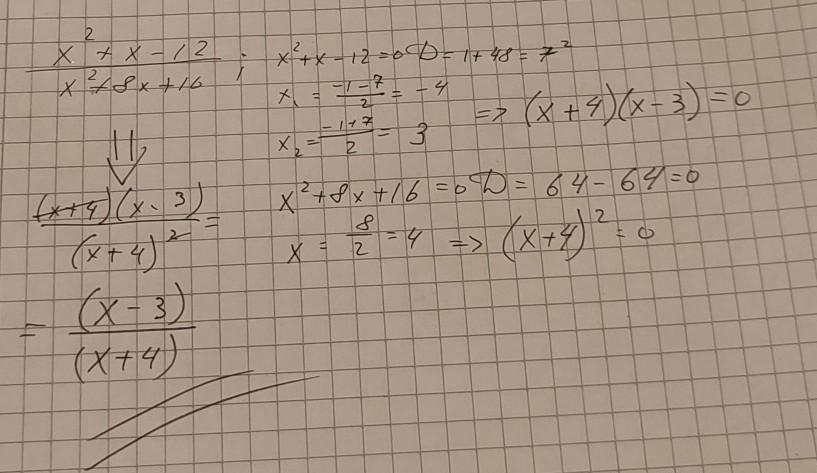 (x² + x - 12)/(x² + 8x + 16) ; x² + x - 12 = 0 D = 1 + 48 = 7²
x₁ = (-1 - 7)/2 = -4
x₂ = (-1 + 7)/2 = 3 => (x + 4)(x - 3) = 0
⇓
(x + 4)(x - 3)/(x + 4)² = x² + 8x + 16 = 0 D = 64 - 64 = 0
x = 8/2 = 4 => (x + 4)² = 0
= (x - 3)/(x + 4)